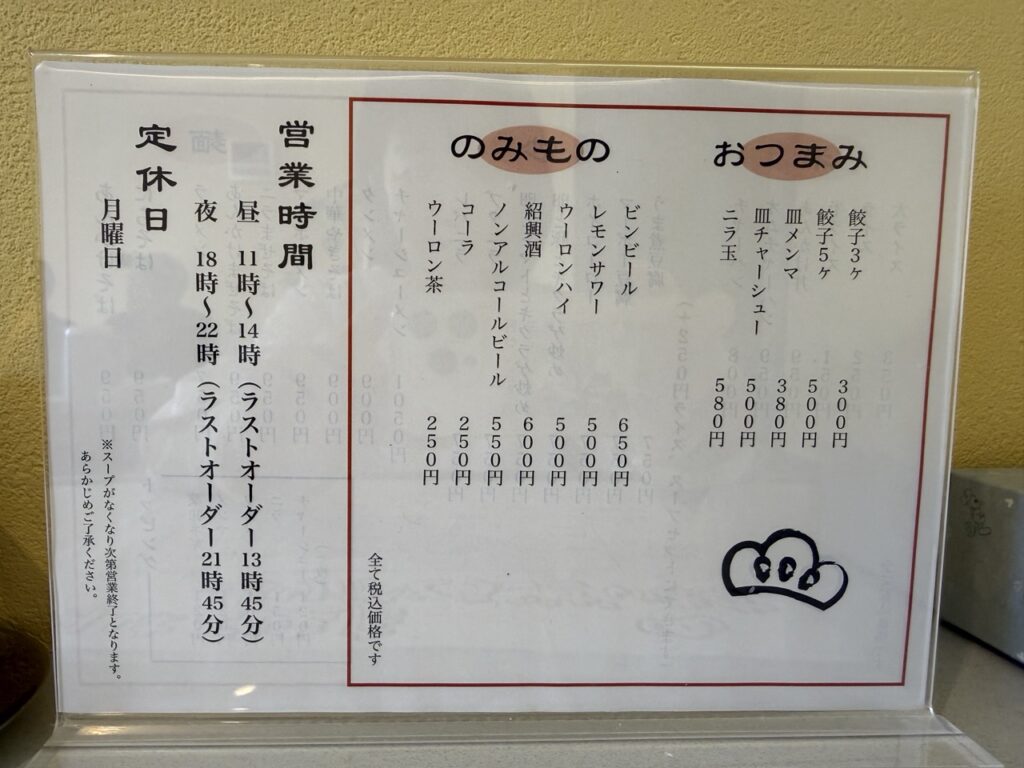 おつまみ
餃子3ヶ 300円
餃子5ヶ 500円
皿メンマ 380円
皿チャーシュー 500円
ニラ玉 580円
のみもの
ビンビール 650円
レモンサワー 500円
ウーロンハイ 500円
紹興酒 600円
ノンアルコールビール 550円
コーラ 250円
ウーロン茶 250円
全て税込価格です
営業時間
昼 11時〜14時(ラストオーダー13時45分)
夜 18時〜22時(ラストオーダー21時45分)
定休日
月曜日
※スープがなくなり次第営業終了となります。
あらかじめご了承ください。